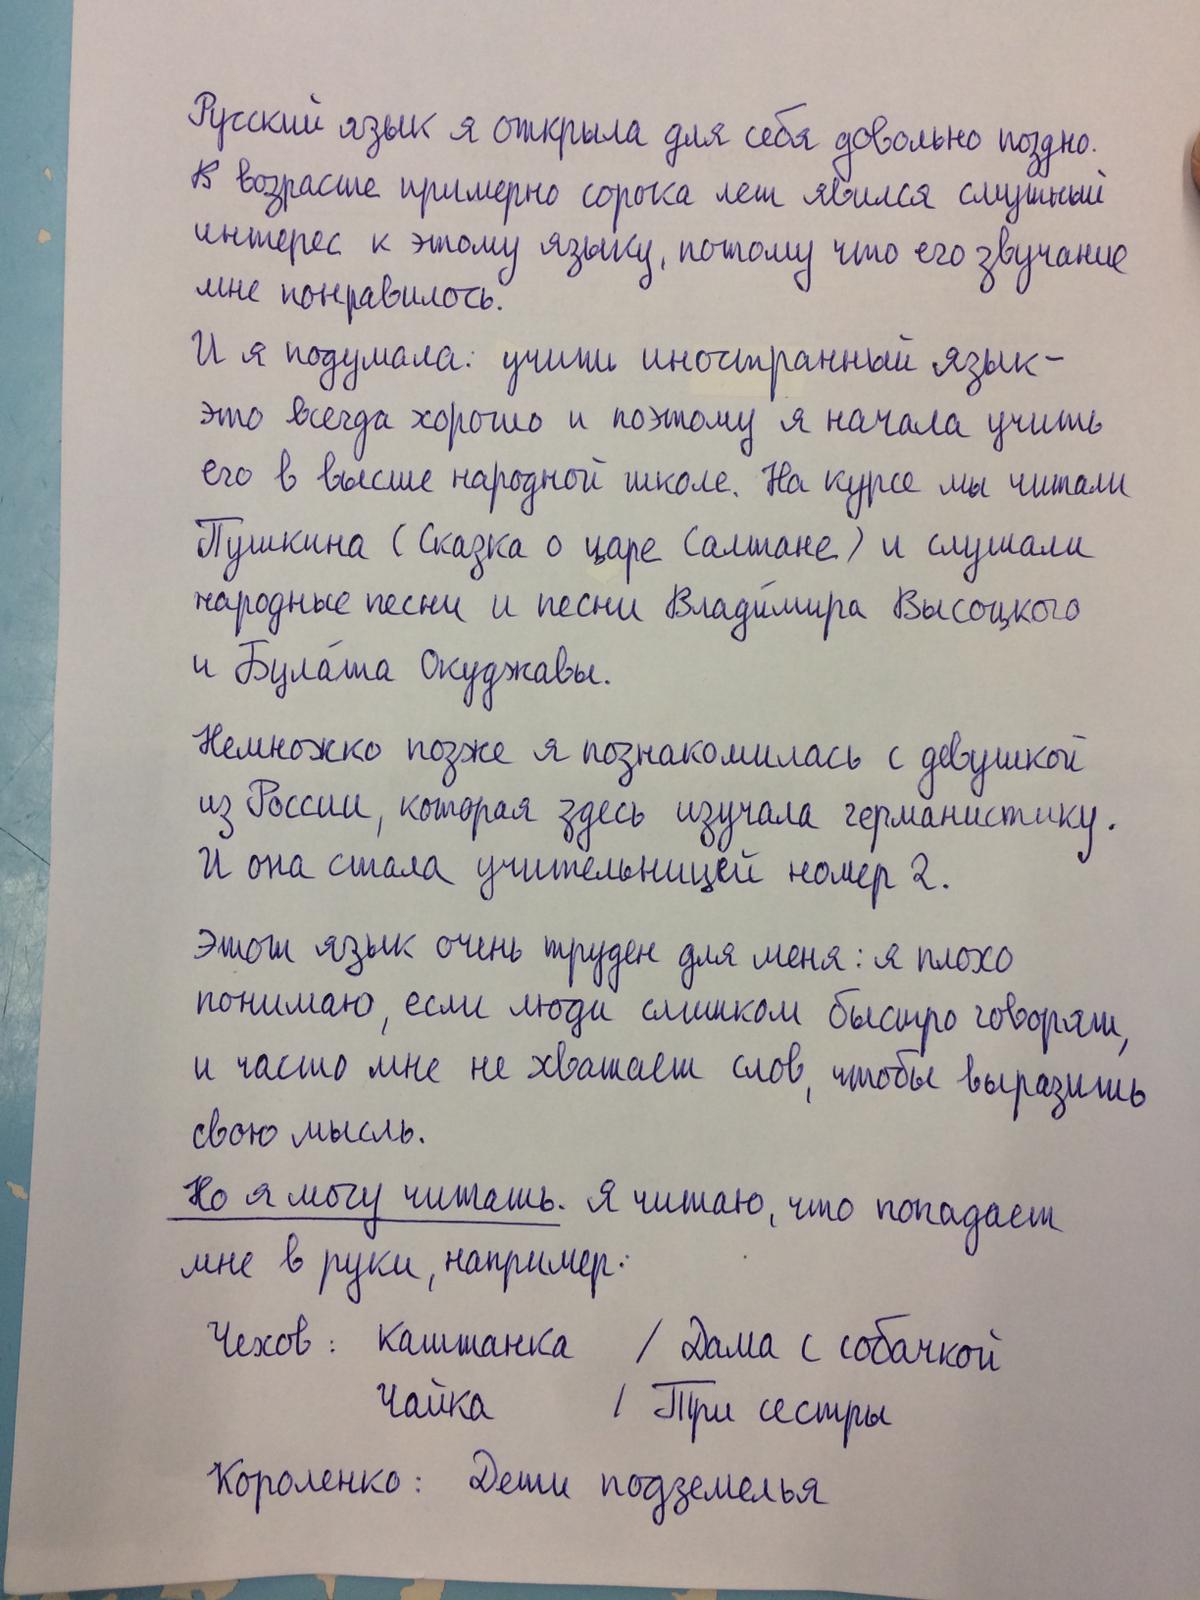 Русский язык я открыла для себя довольно поздно.
В возрасте примерно сорока лет явился смутный
интерес к этому языку, потому что его звучание
мне понравилось.
И я подумала: учить иностранный язык-
это всегда хорошо и поэтому я начала учить
его в высше народной школе. На курсе мы читали
Пушкина (Сказка о царе Салтане) и слушали
народные песни и песни Влади́мира Высоцкого
и Була́та Окуджавы.
Немножко позже я познакомилась с девушкой
из России, которая здесь изучала германистику.
И она стала учительницей номер 2.
Этот язык очень труден для меня: я плохо
понимаю, если люди слишком быстро говорят,
и часто мне не хватает слов, чтобы выразить
свою мысль.
Но я могу читать. Я читаю, что попадает
мне в руки, например:
Чехов: Каштанка / Дама с собачкой
Чайка / Три сестры
Короленко: Дети подземелья